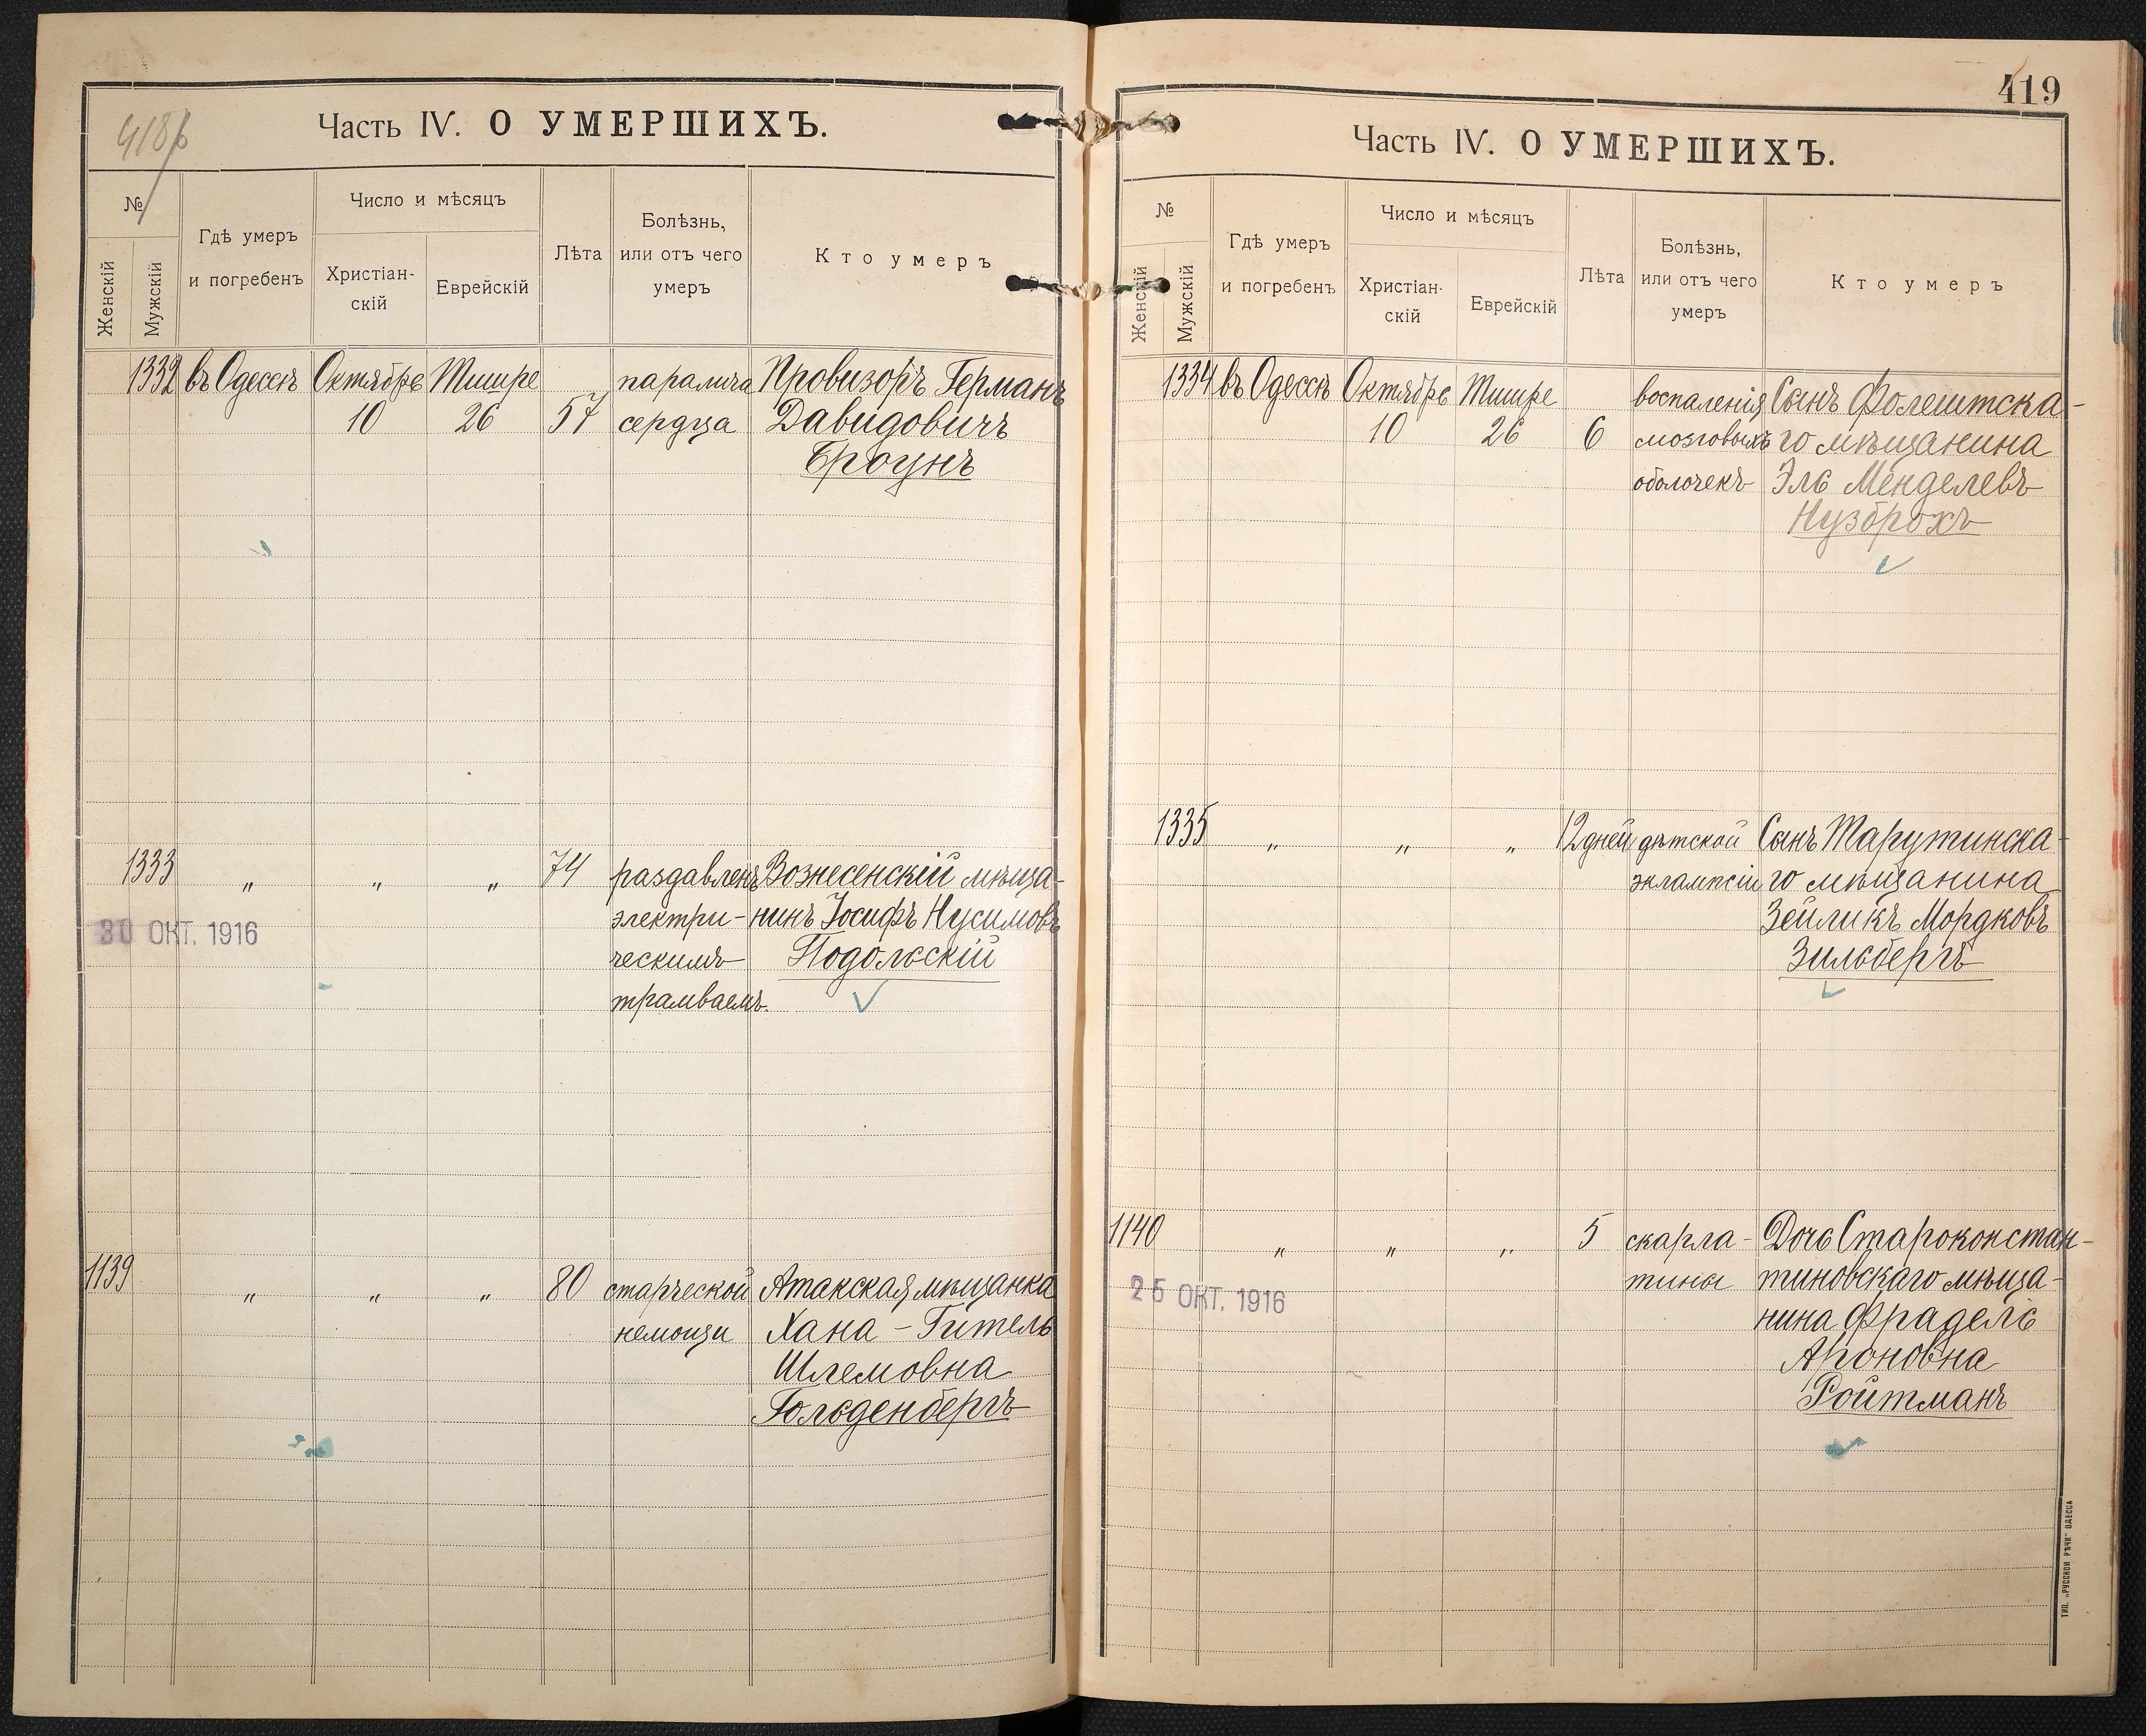 418б
Часть IV. О УМЕРШИХЪ.
№
Женскій
Мужскій
Гдѣ умеръ
и погребенъ
Число и мѣсяцъ
Христіан-
скій
Еврейскій
Лѣта
Болѣзнь,
или отъ чего
умеръ
Кто умеръ
1332 въ Одессѣ Октябрь Тишре паралича Провизоръ Германъ
10 26 57 сердца Давидовичъ
Броунъ
1333 " " " 74 раздавленъ Вознесенскій мѣща-
30 ОКТ. 1916 электри- нинъ Іосифъ Нусимовъ
ческимъ Подольскій
трамваемъ.
1139 " " " 80 старческой Атакская мѣщанка
немощи Хана-Гитель
Шлемовна
Гольденбергъ
419
Часть IV. О УМЕРШИХЪ.
№
Женскій
Мужскій
Гдѣ умеръ
и погребенъ
Число и мѣсяцъ
Христіан-
скій
Еврейскій
Лѣта
Болѣзнь,
или отъ чего
умеръ
Кто умеръ
1334 въ Одессѣ Октябрь Тишре воспаленія Сынъ Фолештска-
10 26 6 мозговыхъ го мѣщанина
оболочекъ Эль Менделевъ
Нузброхъ
1335 " " " 12 дней дѣтской Сынъ Тарутинска-
эклампсіи го мѣщанина
Зейликъ Мордковъ
Зильбергъ
1140 " " " 5 скарла- Дочь Староконстан-
25 ОКТ. 1916 тины тиновскаго мѣща-
нина Фрадель
Ароновна
Ройтманъ
ТИП. „РУССКОЙ РѢЧИ" ОДЕССА